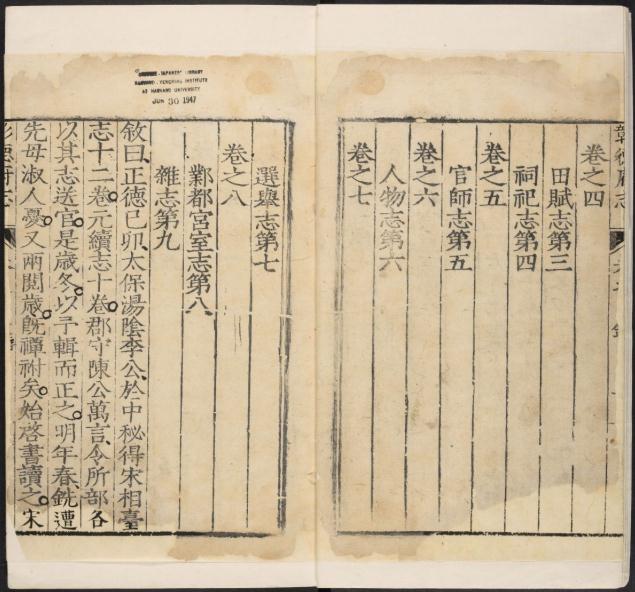 彰德府志
卷之四
田賦志第三
祠祀志第四
卷之五
官師志第五
卷之六
人物志第六
卷之七
選舉志第七
卷之八
鄴都宮室志第八
雜志第九
敘曰正德己卯太保湯陰李公於中秘得宋相臺
志十二卷元續志十卷郡守陳公萬言令所部各
以其志送官是歲冬以予輯而正之明年春銑遭
先母淑人憂又兩閱歲旣禫祔矣始啓書讀之宋
彰德府志
CHINESE - JAPANESE LIBRARY
HARVARD - YENCHING INSTITUTE
AT HARVARD UNIVERSITY
JUN 30 1947